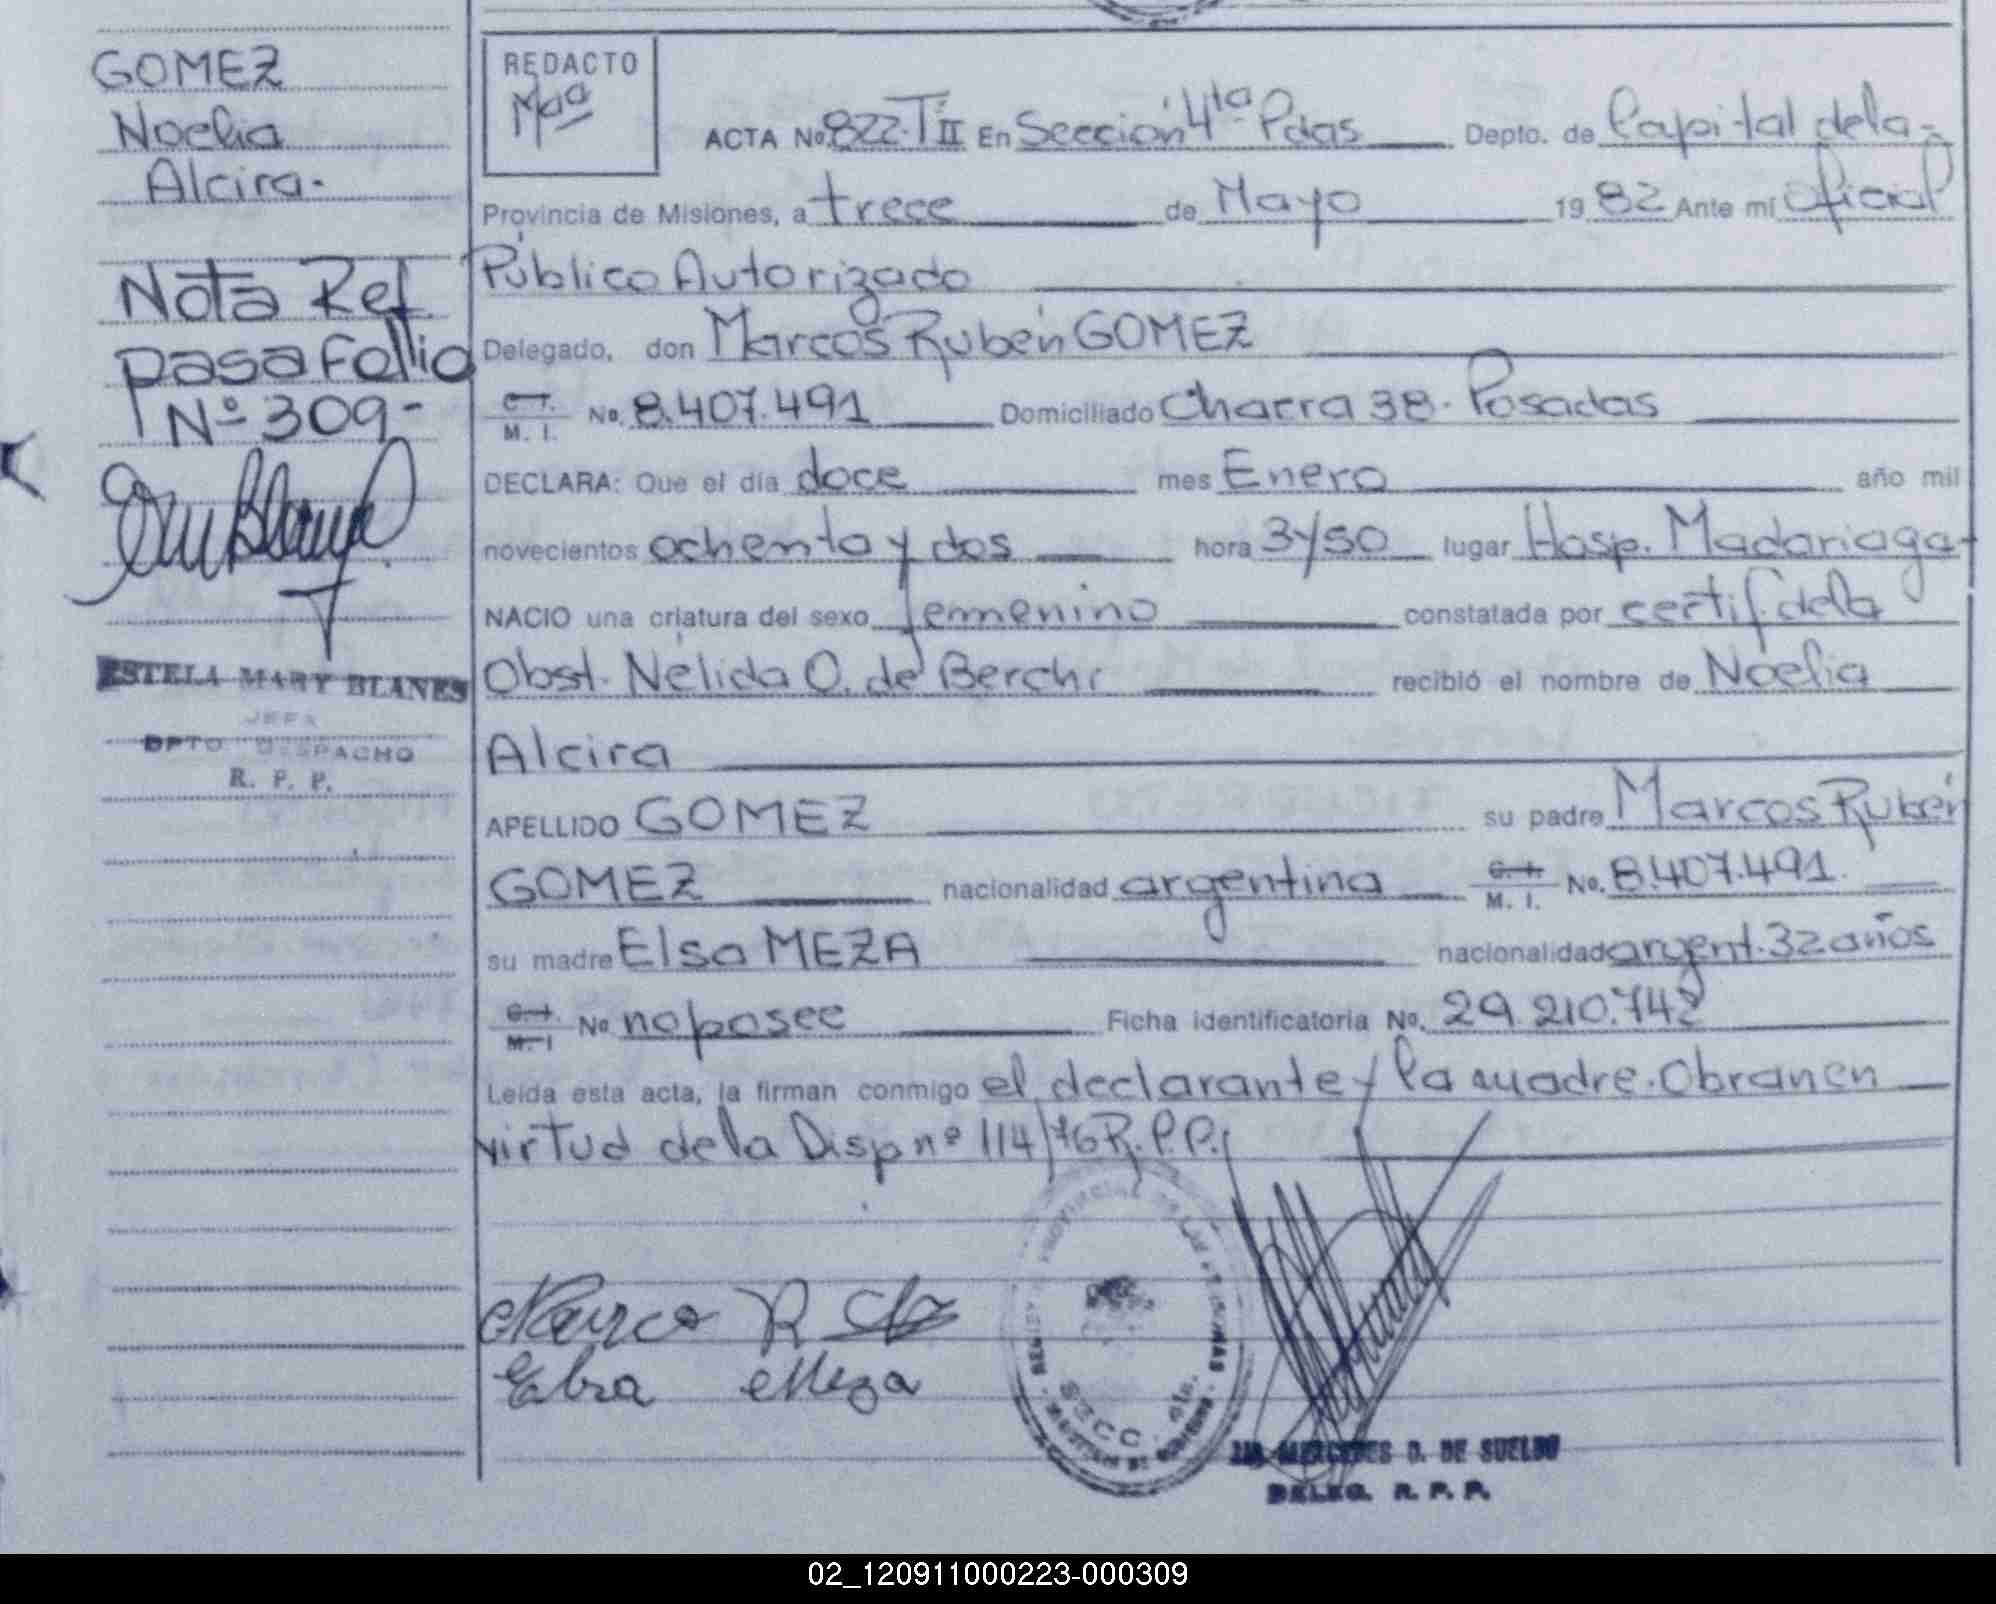 GOMEZ
Noelia
Alcira.
Nota Ref.
pasa Folio
Nº 309-
ESTELA MARY BLANES
JEFA
DPTO DESPACHO
R. P. P.
REDACTO
ACTA No. 822. T II En Sección 4ta Pdas Depto. de Capital de la
Provincia de Misiones, a trece de Mayo 1982 Ante mí Oficial
Público Autorizado
Delegado, don Marcos Rubén GOMEZ
C. I. M. I. No. 8.407.491 Domiciliado Chacra 38. Posadas
DECLARA: Que el día doce mes Enero año mil
novecientos ochenta y dos hora 3 y 50 lugar Hosp. Madariaga
NACIO una criatura del sexo femenino constatada por certif. de la
Obst. Nélida O. de Berchi recibió el nombre de Noelia
Alcira
APELLIDO GOMEZ su padre Marcos Rubén
GOMEZ nacionalidad argentina C. I. M. I. No. 8.407.491.
su madre Elsa MEZA nacionalidad argent. 32 años
C. I. M. I No no posee Ficha identificatoria No. 29.210.742
Leída esta acta, la firman conmigo el declarante y la madre. Obran en
virtud de la Disp nº 114/76 R.P.P.
Elsa Meza
SECC. 4ta.
MERCEDES D. DE SUELDO
DELEG. R. P. P.
02_120911000223-000309